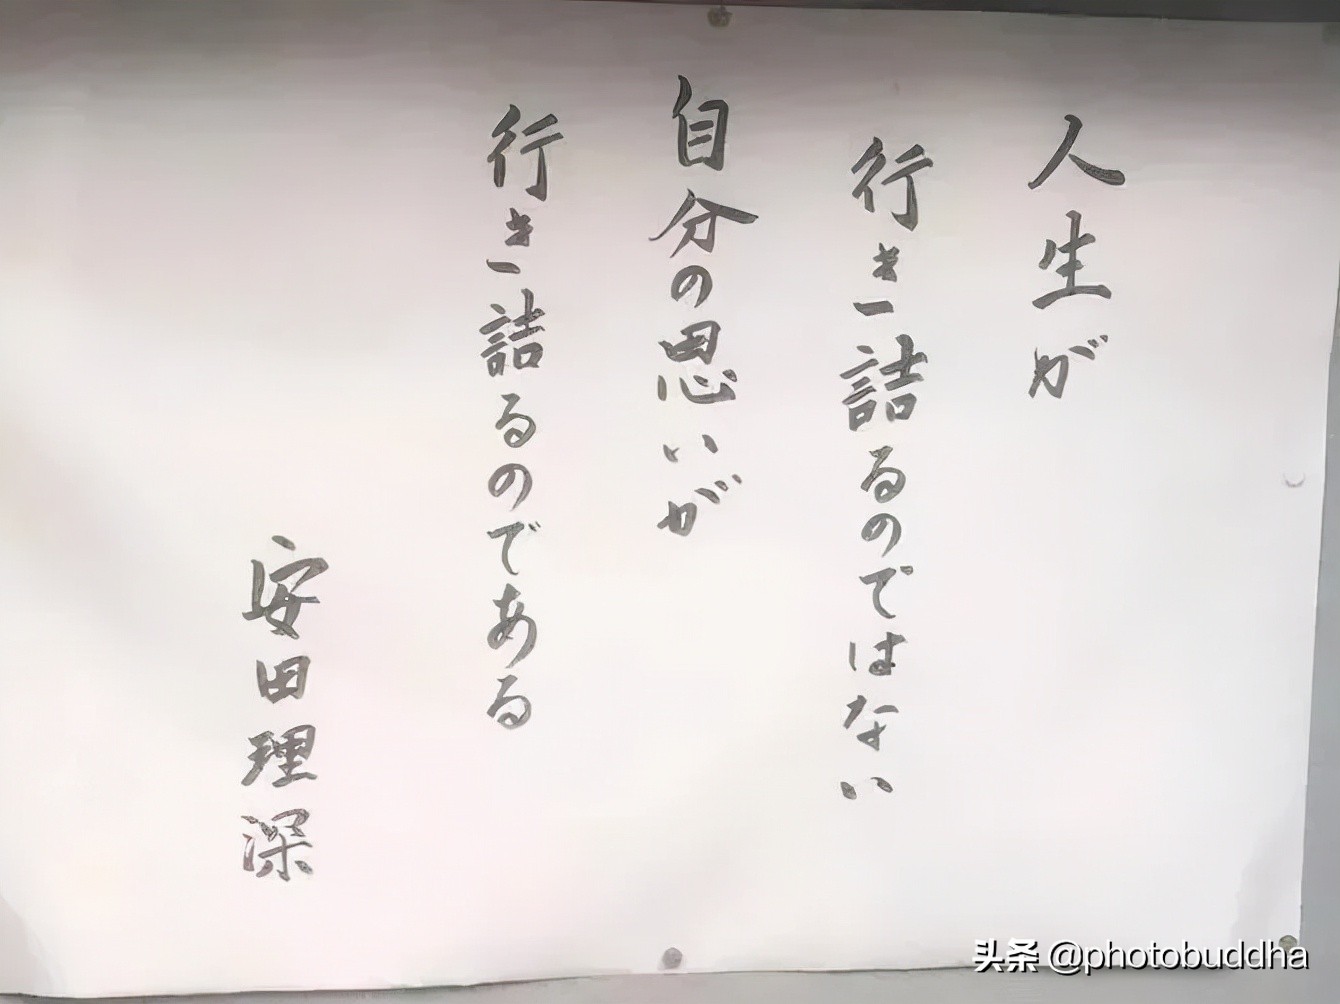 人生が
行き詰るのではない
自分の思いが
行き詰るのである
安田理深
头条 @photobuddha